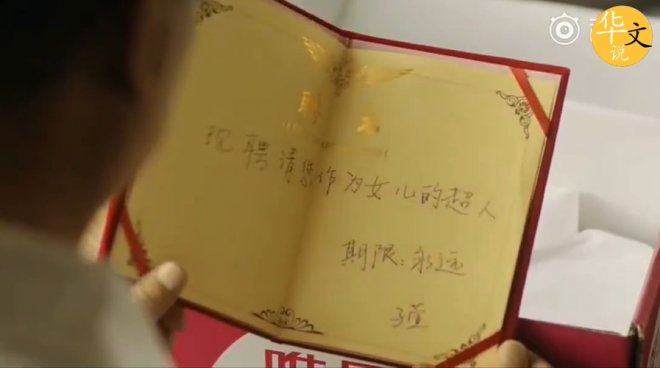 华
文
说
聘
现聘请您作为女儿的超人
期限:永远
唯